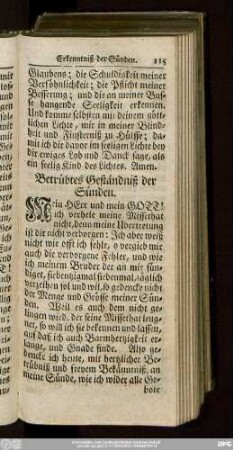 Erkenntniß der Sünden. 215
Glaubens; die Schuldigkeit meiner
Versöhnlichkeit; die Pflicht meiner
Besserung; und die an meiner Bus-
se hangende Seeligkeit erkennen.
Und komme selbsten mit deinem gött-
lichen Lichte, mir in meiner Blind-
heit und Finsterniß zu Hülffe; da-
mit ich dir davor im seeligen Lichte bey
dir ewiges Lob und Danck sage, als
ein seelig Kind des Lichtes. Amen.
Betrübtes Geständniß der
Sünden.
Mein HErr und mein GOTT!
ich verhele meine Missethat
nicht, denn meine Ubertretung
ist dir nicht verborgen: Ich aber weiß
nicht wie offt ich fehle, o vergieb mir
auch die verborgene Fehler, und wie
ich meinem Bruder der an mir sün-
diget, siebentzigmal siebenmal, täglich
verzeihen sol und wil, so gedencke nicht
der Menge und Grösse meiner Sün-
den. Weil es auch dem nicht ge-
lingen wird, der seine Missethat leug-
net, so will ich sie bekennen und lassen,
auf daß ich auch Barmhertzigkeit er-
lange, und Gnade finde. Also ge-
dencke ich heute, mit hertzlicher Be-
trübniß und freyem Bekäntniß, an
meine Sünde, wie ich wider alle Ge-
bote